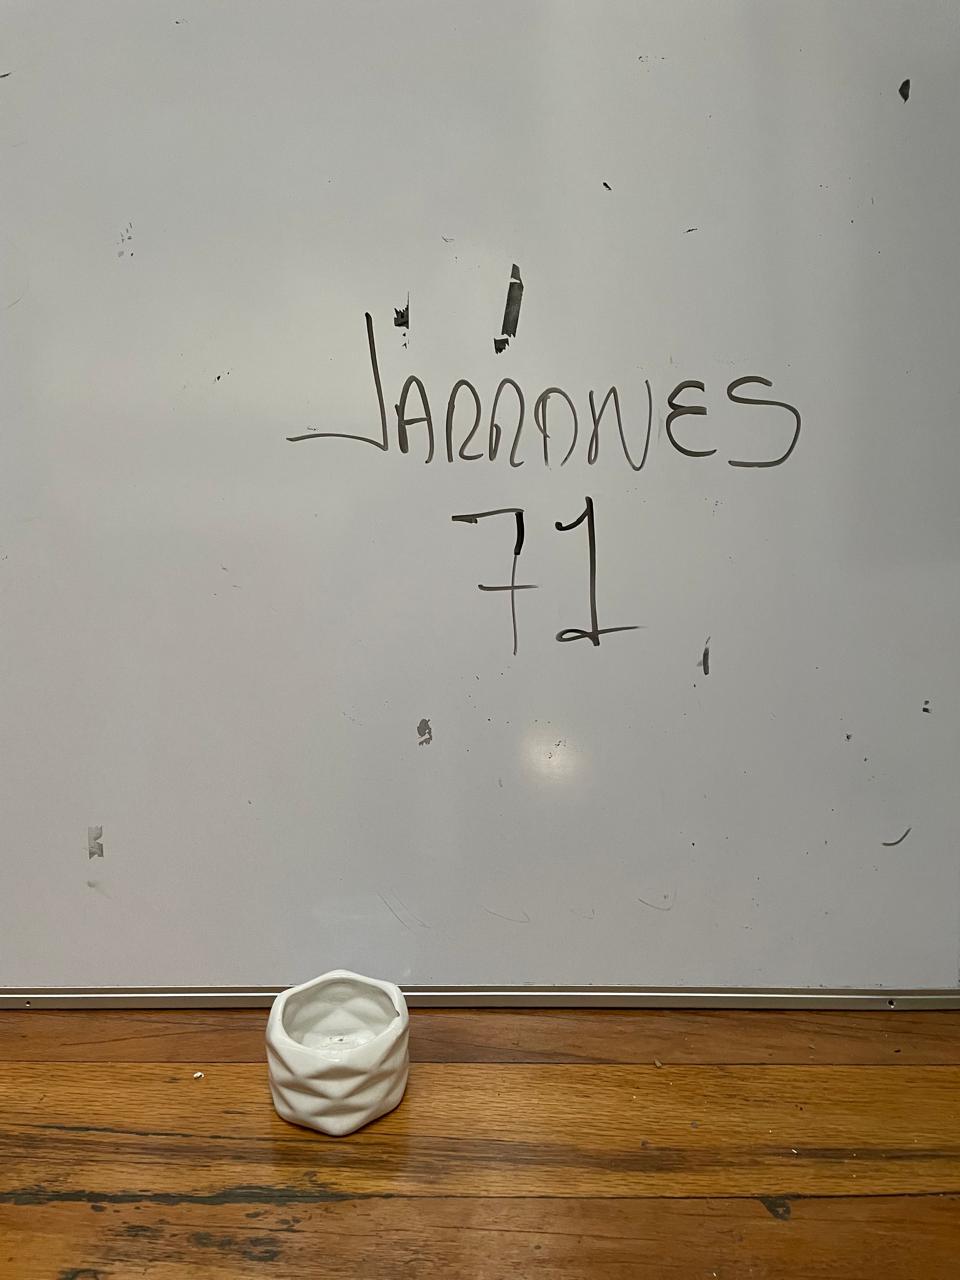 JARRONES
71